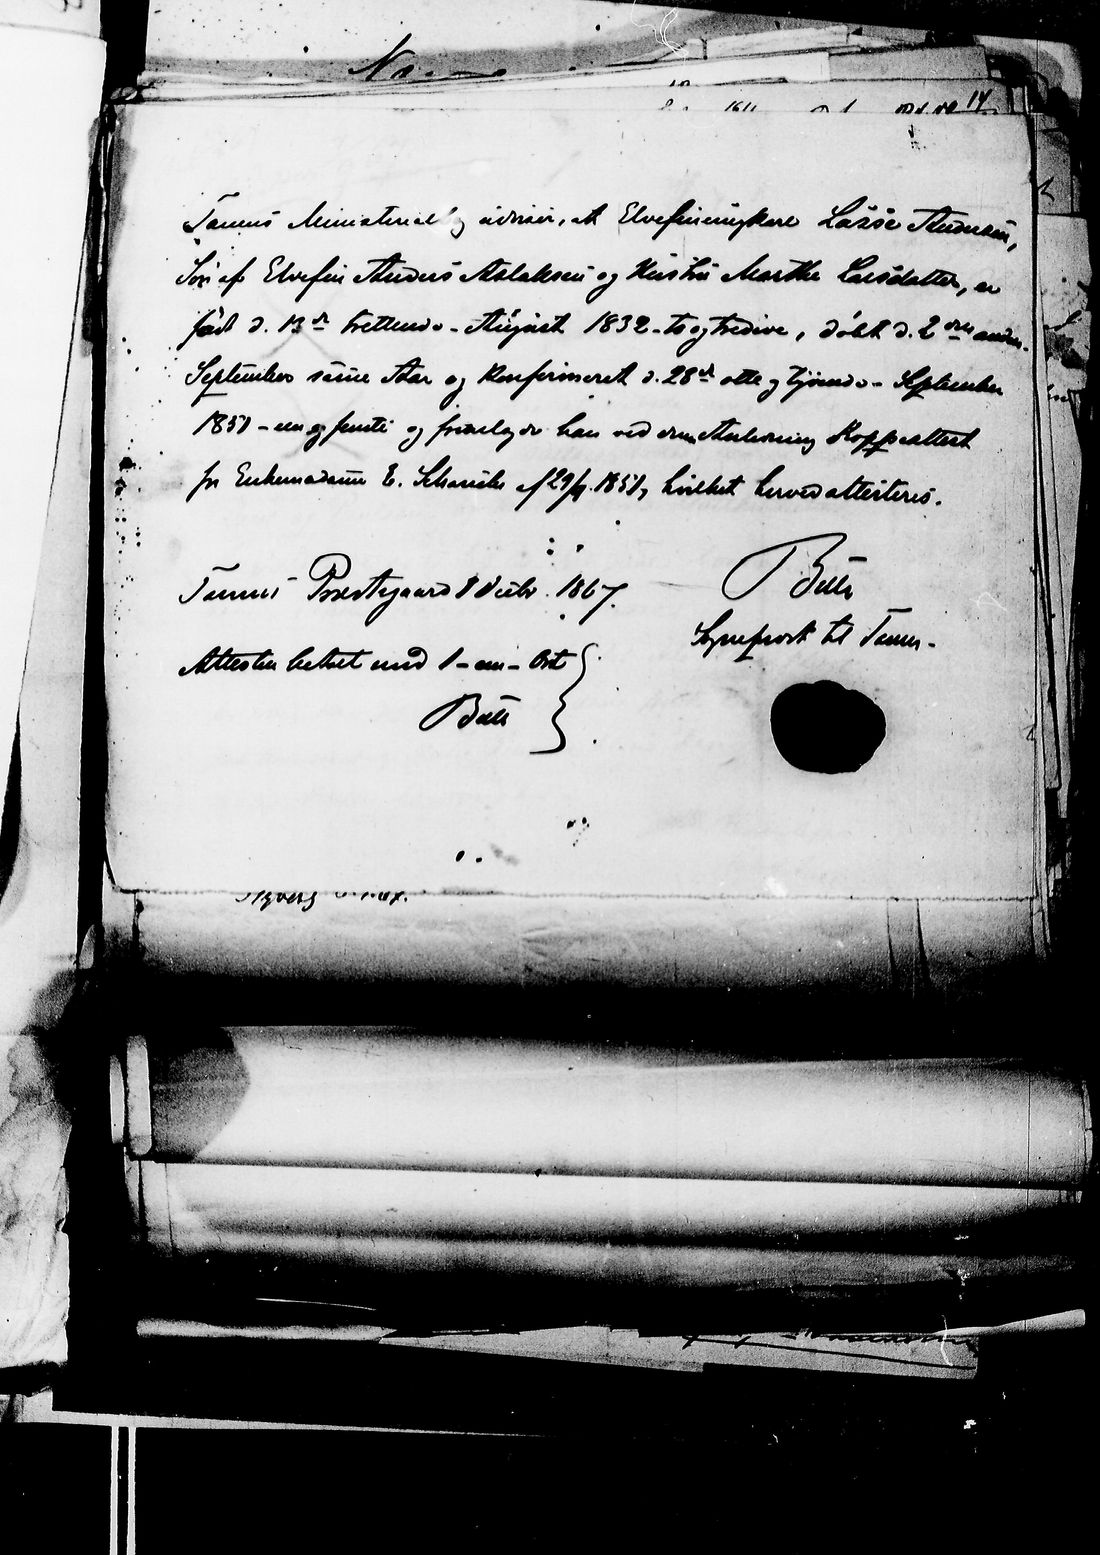 14
Tanens Ministerialbog udviser, at Elvefinungkarl Lasse Andersen,
Søn af Elvefin Anders Aslaksen og Hustru Marthe Larsdatter, er
født d. 13de trettende - August 1832 - to og tredive, døbt d. 2den anden
September samme Aar og konfirmeret d. 28de otte og tyvende - September
1851 - en og femti og foreslagde han ved den Anledning Koppeattest
fra Enkemadame E. Schanche af 29/9. 1851, hvilket herved attesteres.
Tanens Præstegaard 1 Decbr. 1867.
Balle
Sognepræst til Tanen.
Attesten betalt med 1 - en - Ort
Balle